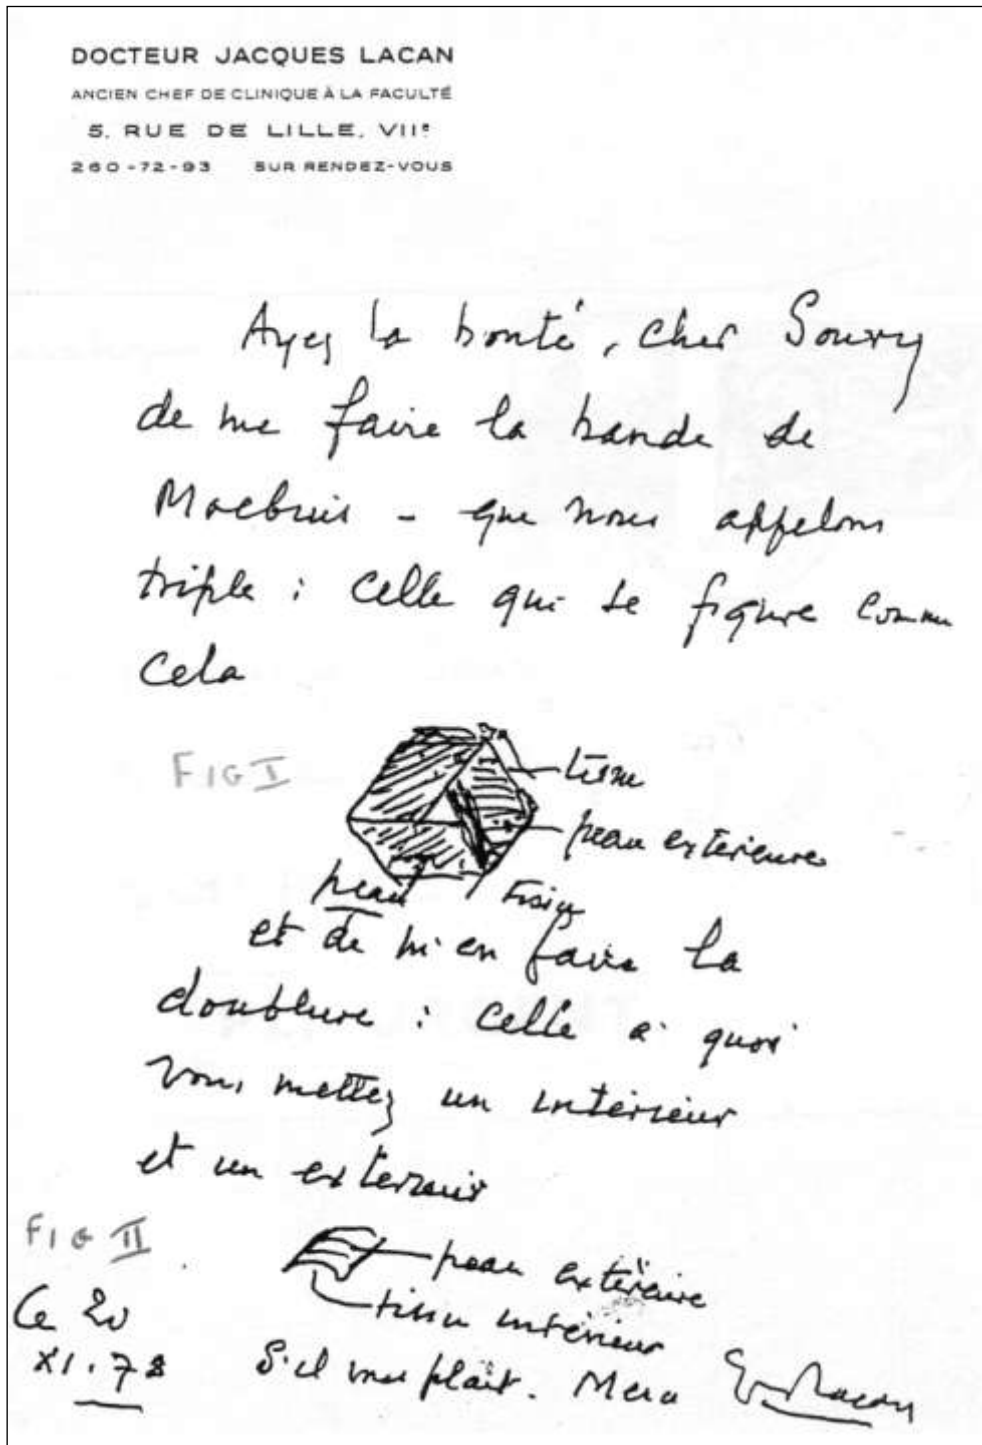 DOCTEUR JACQUES LACAN
ANCIEN CHEF DE CLINIQUE À LA FACULTÉ
5, RUE DE LILLE, VIIe
260-72-93 SUR RENDEZ-VOUS
Ayez la bonté, cher Soury
de me faire la bande de
Moebius - que nous appelons
triple : celle qui se figure comme
cela
FIG I
tissu
peau extérieure
peau tissu
et de m'en faire la
doublure : celle à quoi
vous mettez un intérieur
et un exterieur
FIG II
peau extérieure
tissu intérieur
Ce 20
XI.78
S'il vous plaît. Merci